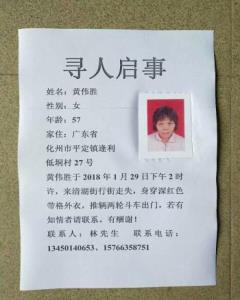 寻人启事
姓名：黄伟胜
性别：女
年龄：57
家住：广东省
化州市平定镇逢利
低垌村 27 号
黄伟胜于 2018 年 1 月 29 日下午 2 时
许，来清湖街行街走失，身穿深红色
带格外衣，推辆两轮斗车出门，若有
知情者请联系，有酬谢！
联系人：林先生 联系电话：
13450140653、15766358751